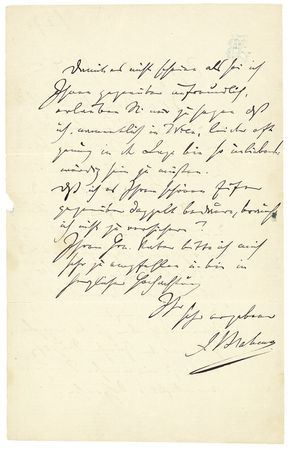 Damit es nicht scheine als sei ich
Ihnen gegenüber unfreundlich,
erlauben Sie mir zu sagen daß
ich, namentlich in Wien, leider oft
genug in der Lage bin so unliebens-
würdig sein zu müssen.
Daß ich es Ihren schönen
gegenüber doppelt bedaure, brauche
ich nicht zu versichern?
Ihrem bitte ich mich
sehr zu empfehlen u. bin in
Hochachtung
Ihr
sehr ergebener
J. Brahms